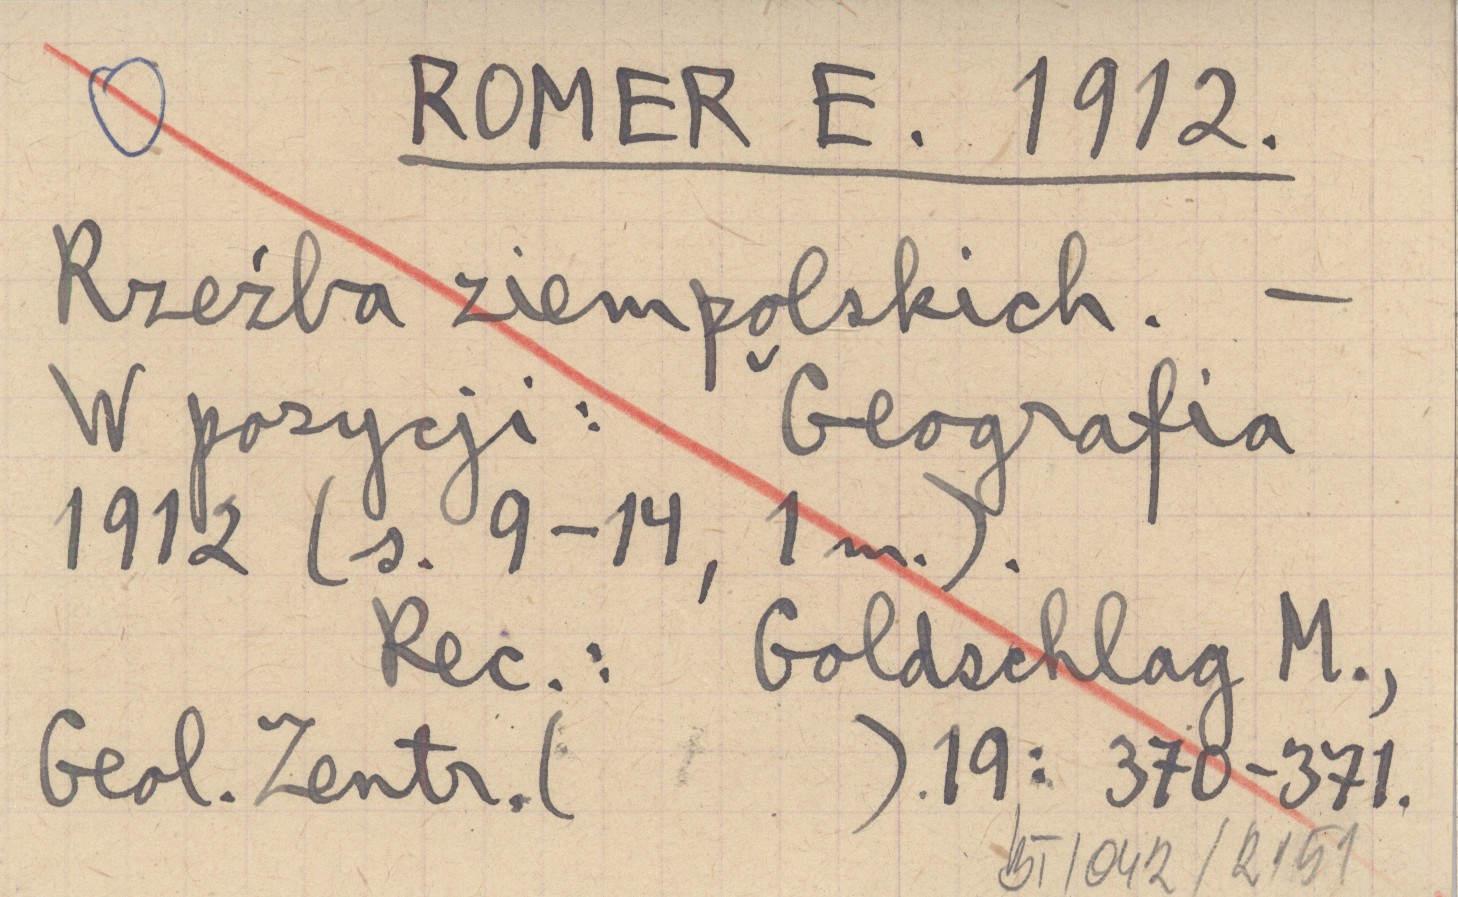 ROMER E. 1912.
Rzeźba ziem polskich. —
W pozycji: Geografia
1912 (s. 9-14, 1 m.).
Rec.: Goldschlag M.,
Geol. Zentr. ( ). 19: 370-371.
/042/2151